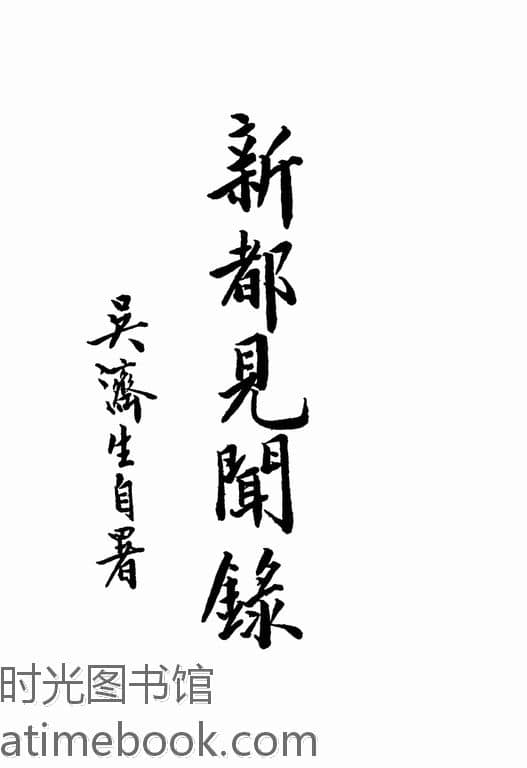 新都見聞錄
吳濟生自署
时光图书馆
atimebook.com